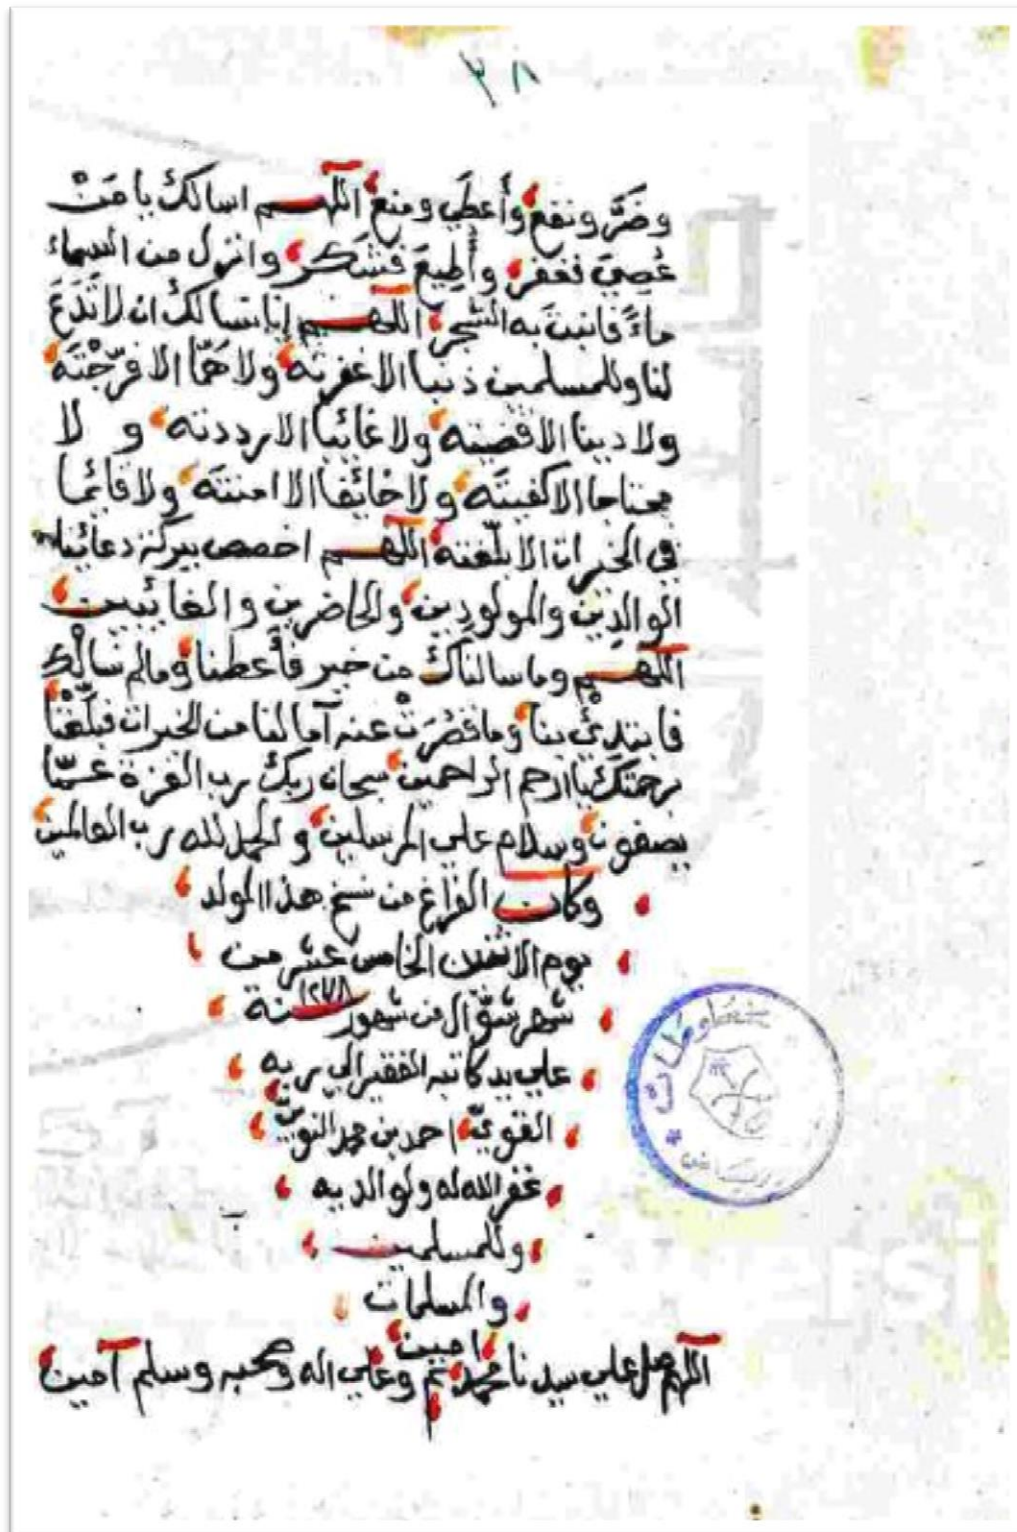 ٣٨
وضَرَّ ونفع وأَعطَي ومنع اللهم اسالك يا مَنْ
عُصِيَ فغفر وأُطِيعَ فشَكر وانزل من السماء
ماءً فانبت به الشجر اللهم إنا نسالك ان لا تَدَعَ
لنا وللمسلمين ذنبا الا غفرته ولا هَمّا الا فرّجْتَه
ولا دينا الا قضيته ولا غائبا الا رددته و لا
محتاجا الا كفيتَه ولا خائفا الا امنتَه ولا قائما
في الخيرات الا بلّغته اللهم اخصص ببركة دعائنا
الوالدِين والمولودين والحاضرين والغائبين
اللهم وما سالناك من خير فأَعطنا وما لم نسالك
فابتدئ بنا وما قصُرَتْ عنه آمالنا من الخيرات فبلّغْنا
برحمتك يا ارحم الراحمين سبحان ربك رب العزة عمّا
يصفون وسلام علي المرسلين والحمد لله رب العالمين
وكان الفراغ من نسخ هذا المولد
يوم الاثنين الخامس عشر من
شهر شوّال من شهور سنة ١٢٧٨
علي يد كاتبه الفقير الي ربه
القويّ احمد بن محمد
غفر الله له ولوالديه
وللمسلمين
والمسلمات
امين
اللهم صل علي سيدنا محمد وعلي اله وصحبه وسلم آمين
تم
مخطوطات